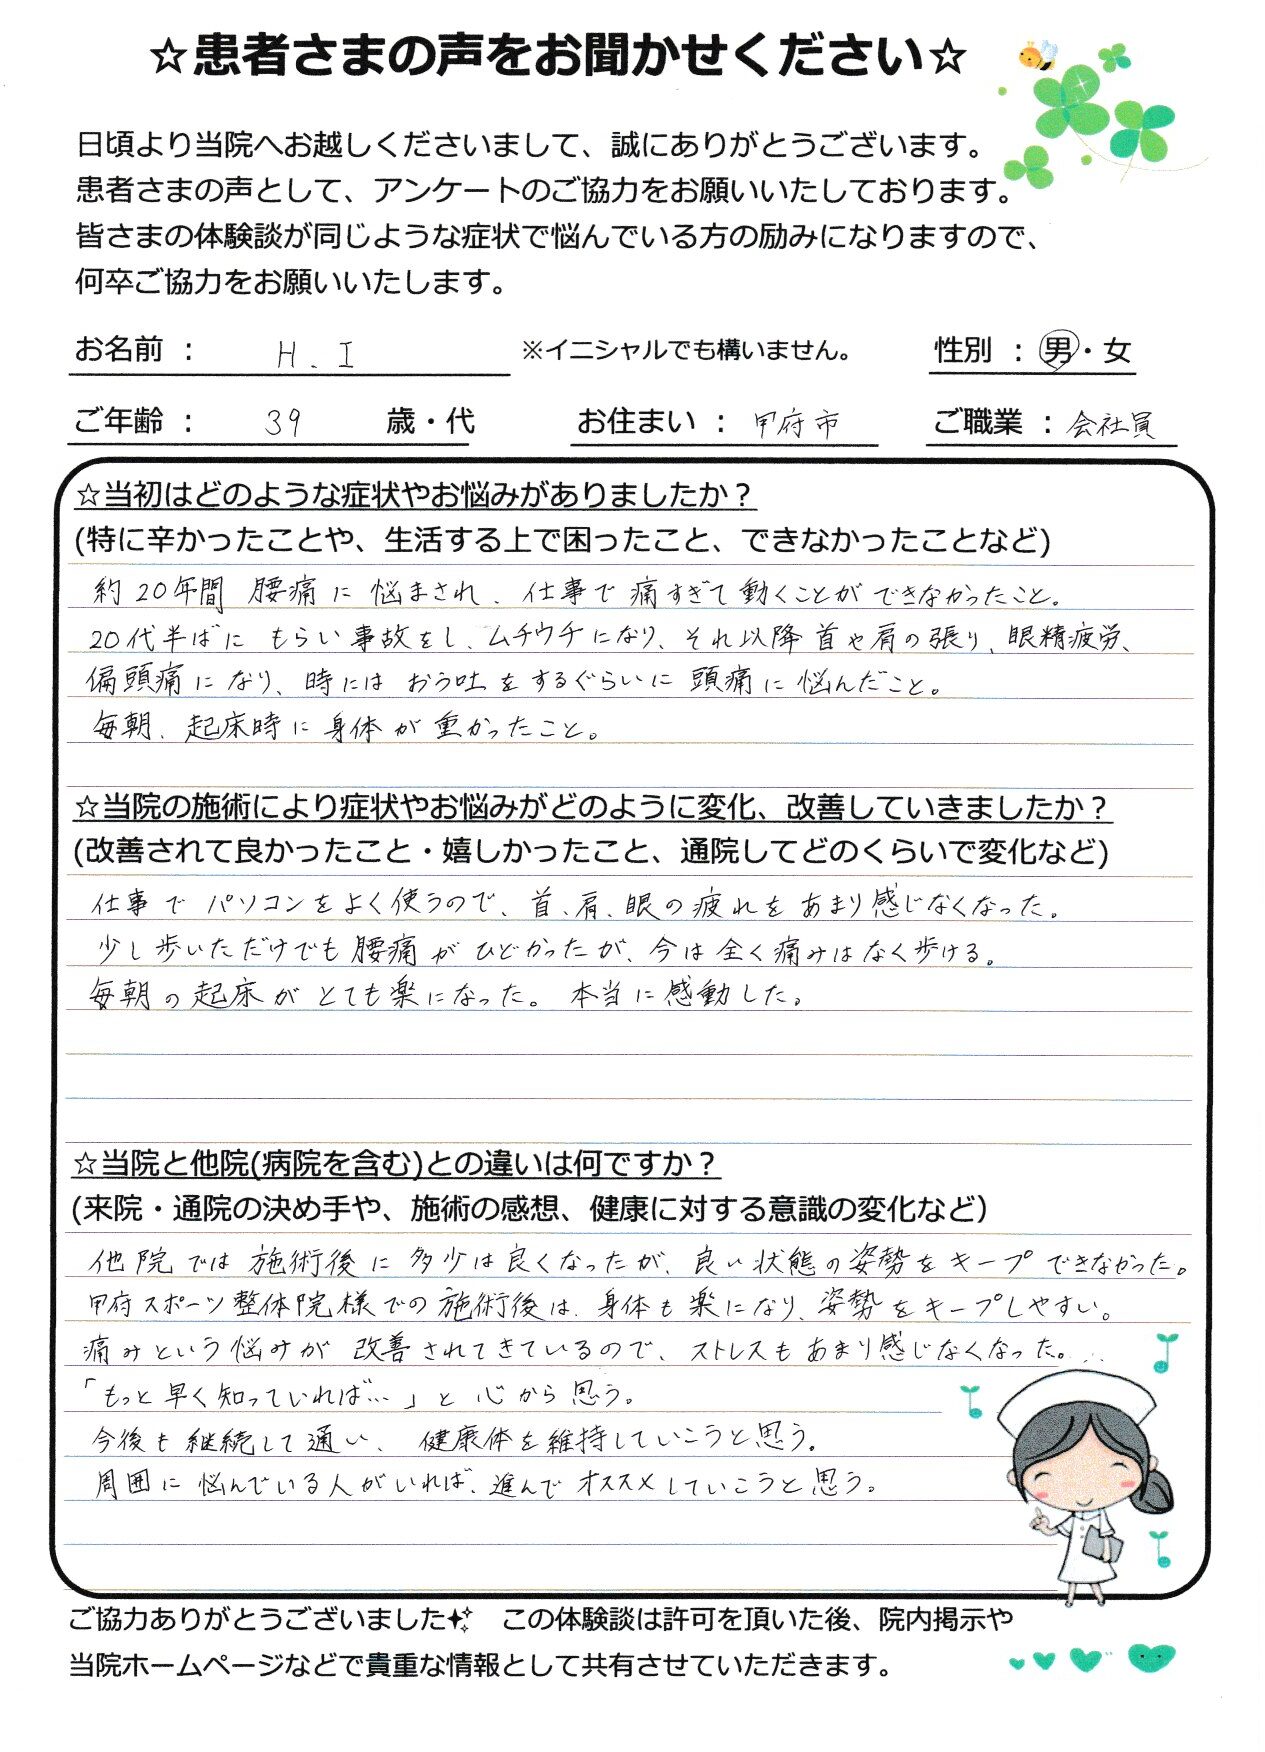 ☆患者さまの声をお聞かせください☆
日頃より当院へお越しくださいまして、誠にありがとうございます。
患者さまの声として、アンケートのご協力をお願いいたしております。
皆さまの体験談が同じような症状で悩んでいる方の励みになりますので、
何卒ご協力をお願いいたします。
お名前 : H.I ※イニシャルでも構いません。 性別 : 男・女
ご年齢 : 39 歳・代 お住まい : 甲府市 ご職業 : 会社員
☆当初はどのような症状やお悩みがありましたか？
(特に辛かったことや、生活する上で困ったこと、できなかったことなど)
約20年間 腰痛に悩まされ、仕事で痛すぎて動くことができなかったこと。
20代半ばに もらい事故をし、ムチウチになり、それ以降首や肩の張り、眼精疲労、
偏頭痛になり、時には おう吐をするぐらいに頭痛に悩んだこと。
毎朝、起床時に身体が重かったこと。
☆当院の施術により症状やお悩みがどのように変化、改善していきましたか？
(改善されて良かったこと・嬉しかったこと、通院してどのくらいで変化など)
仕事でパソコンをよく使うので、首、肩、眼の疲れをあまり感じなくなった。
少し歩いただけでも腰痛がひどかったが、今は全く痛みはなく歩ける。
毎朝の起床がとても楽になった。本当に感動した。
☆当院と他院(病院を含む)との違いは何ですか？
(来院・通院の決め手や、施術の感想、健康に対する意識の変化など)
他院では施術後に多少は良くなったが、良い状態の姿勢をキープできなかった。
甲府スポーツ整体院様での施術後は、身体も楽になり、姿勢をキープしやすい。
痛みという悩みが改善されてきているので、ストレスもあまり感じなくなった。
「もっと早く知っていれば…」と心から思う。
今後も継続して通い、健康体を維持していこうと思う。
周囲に悩んでいる人がいれば、進んでオススメしていこうと思う。
ご協力ありがとうございました この体験談は許可を頂いた後、院内掲示や
当院ホームページなどで貴重な情報として共有させていただきます。